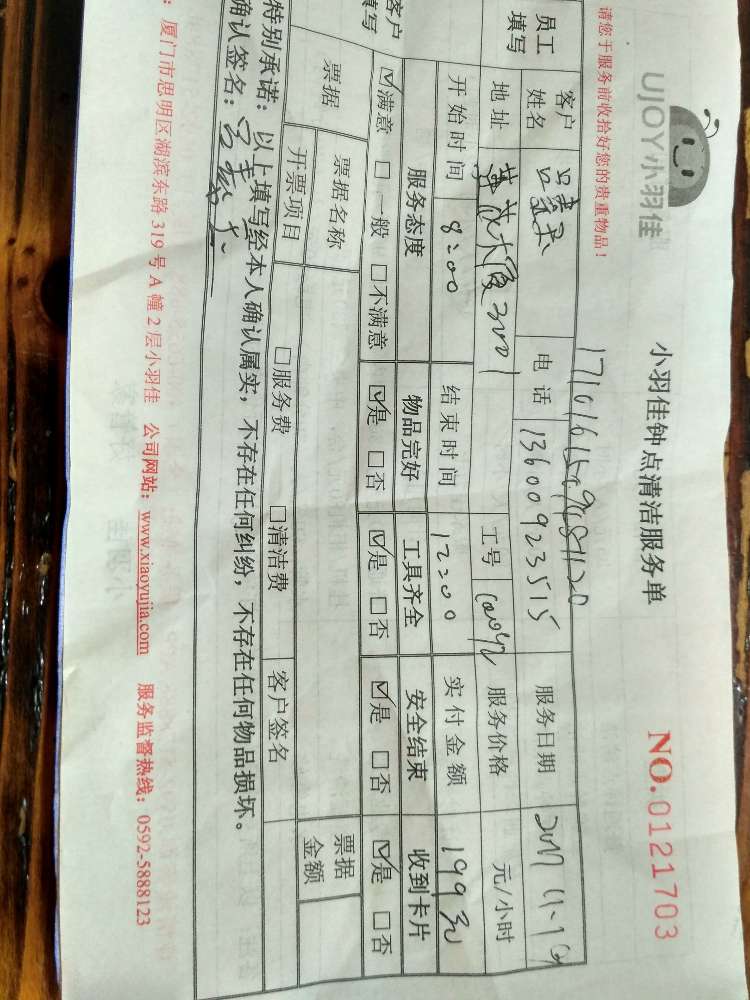 UJOY小羽佳
小羽佳钟点清洁服务单
NO.0121703
请您于服务前收拾好您的贵重物品！
员工填写
客户姓名 电话 13600923515 服务日期
地址 大厦3201 工号 服务价格 元/小时
开始时间 8:00 结束时间 12:00 实付金额 199元
客户填写
服务态度 物品完好 工具齐全 安全结束 收到卡片
☑满意 □一般 □不满意 ☑是 □否 ☑是 □否 ☑是 □否 ☑是 □否
票据 票据名称 票据金额
开票项目 □服务费 □清洁费 客户签名
特别承诺：以上填写经本人确认属实，不存在任何纠纷，不存在任何物品损坏。
确认签名：
：厦门市思明区湖滨东路319号A幢2层小羽佳 公司网站：www.xiaoyujia.com 服务监督热线：0592-5888123